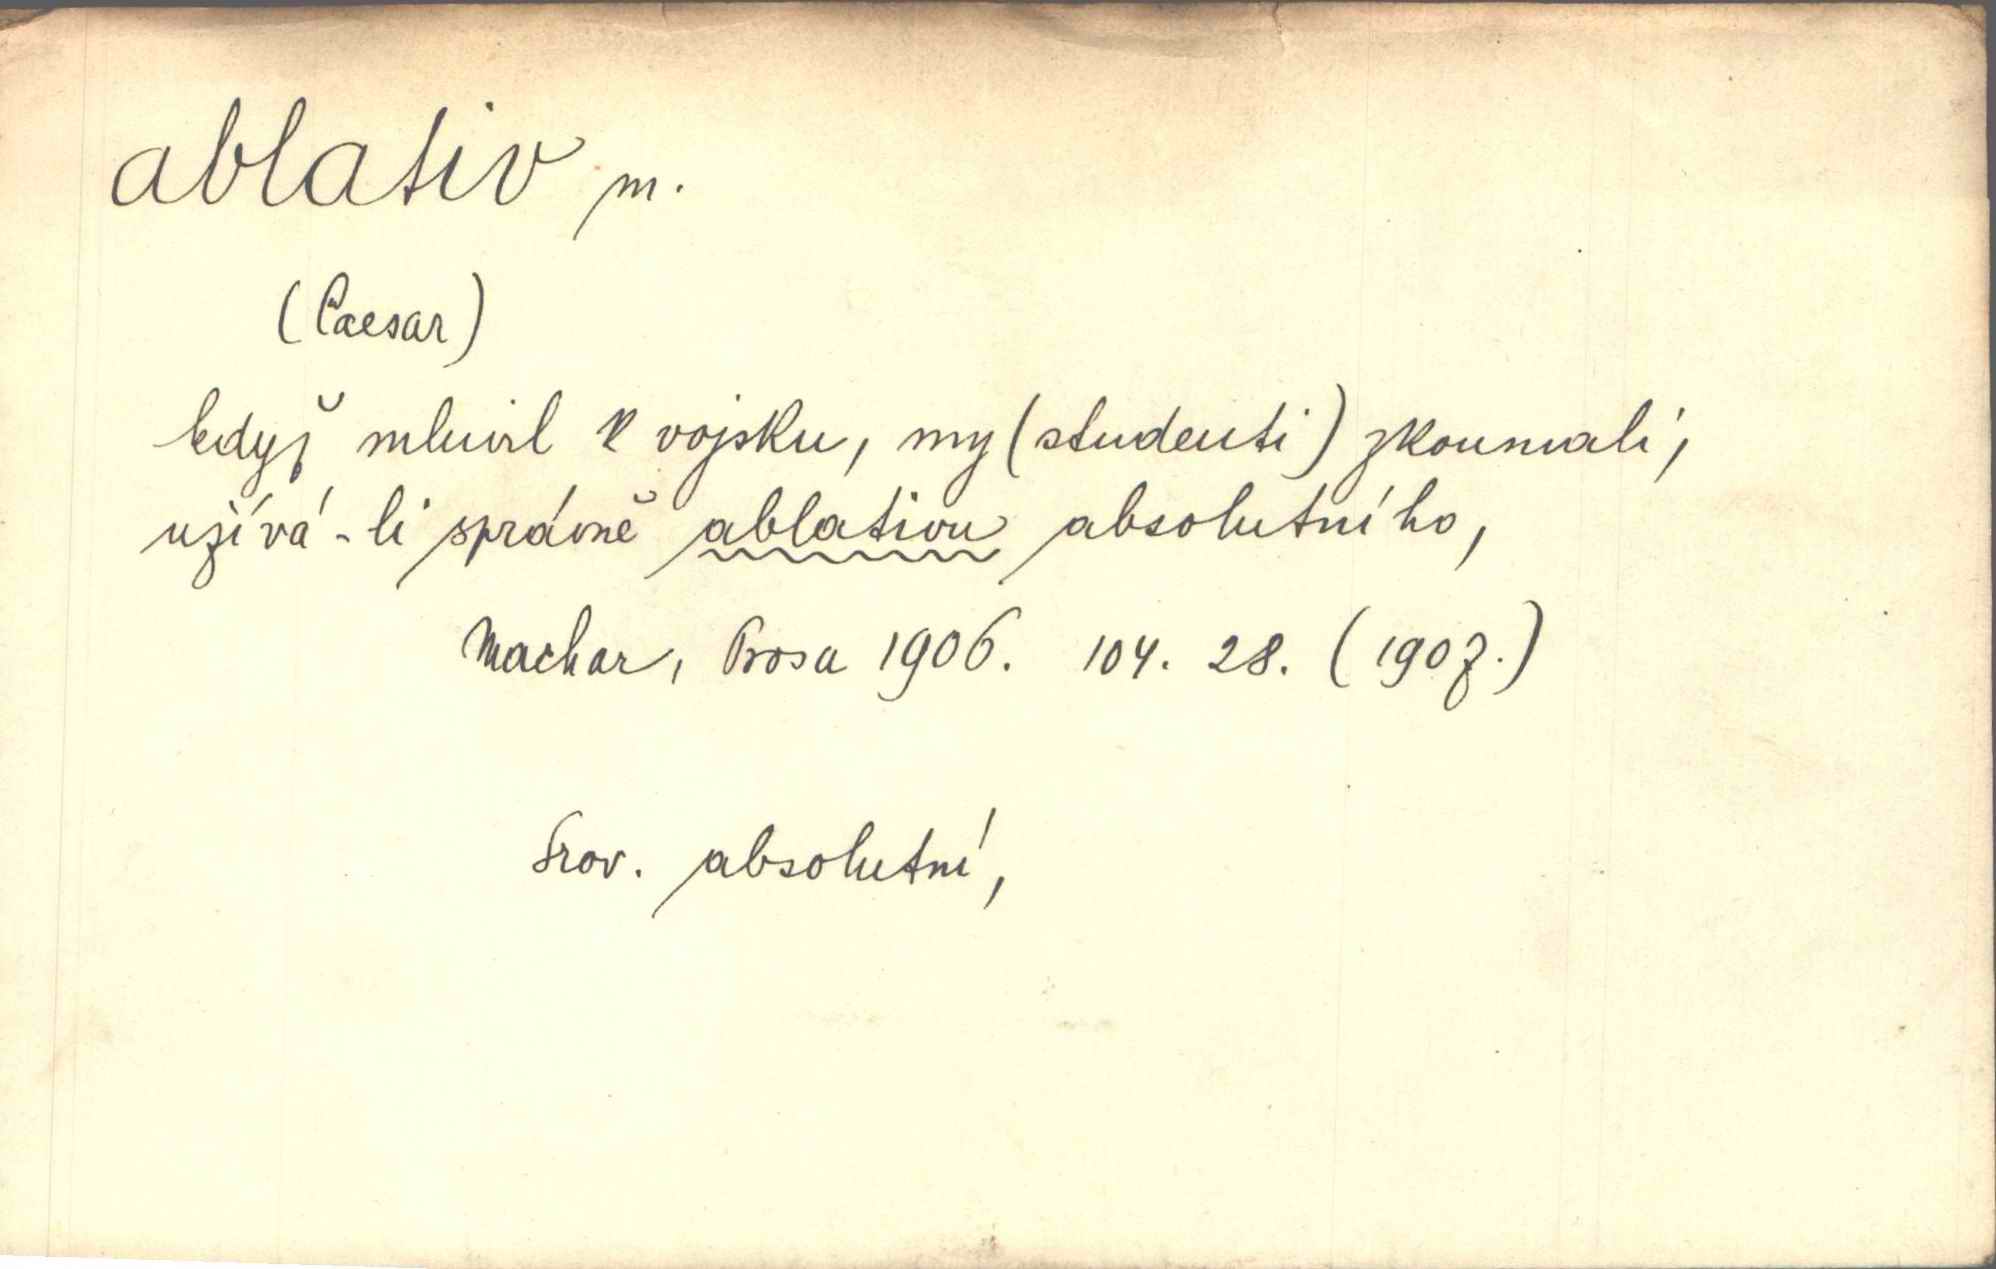 ablativ m.
(Caesar)
když mluvil k vojsku, my (studenti) zkoumali,
užívá-li správně ablativu absolutního,
Machar, Prosa 1906. 104. 28. (1907.)
Srov. absolutní,